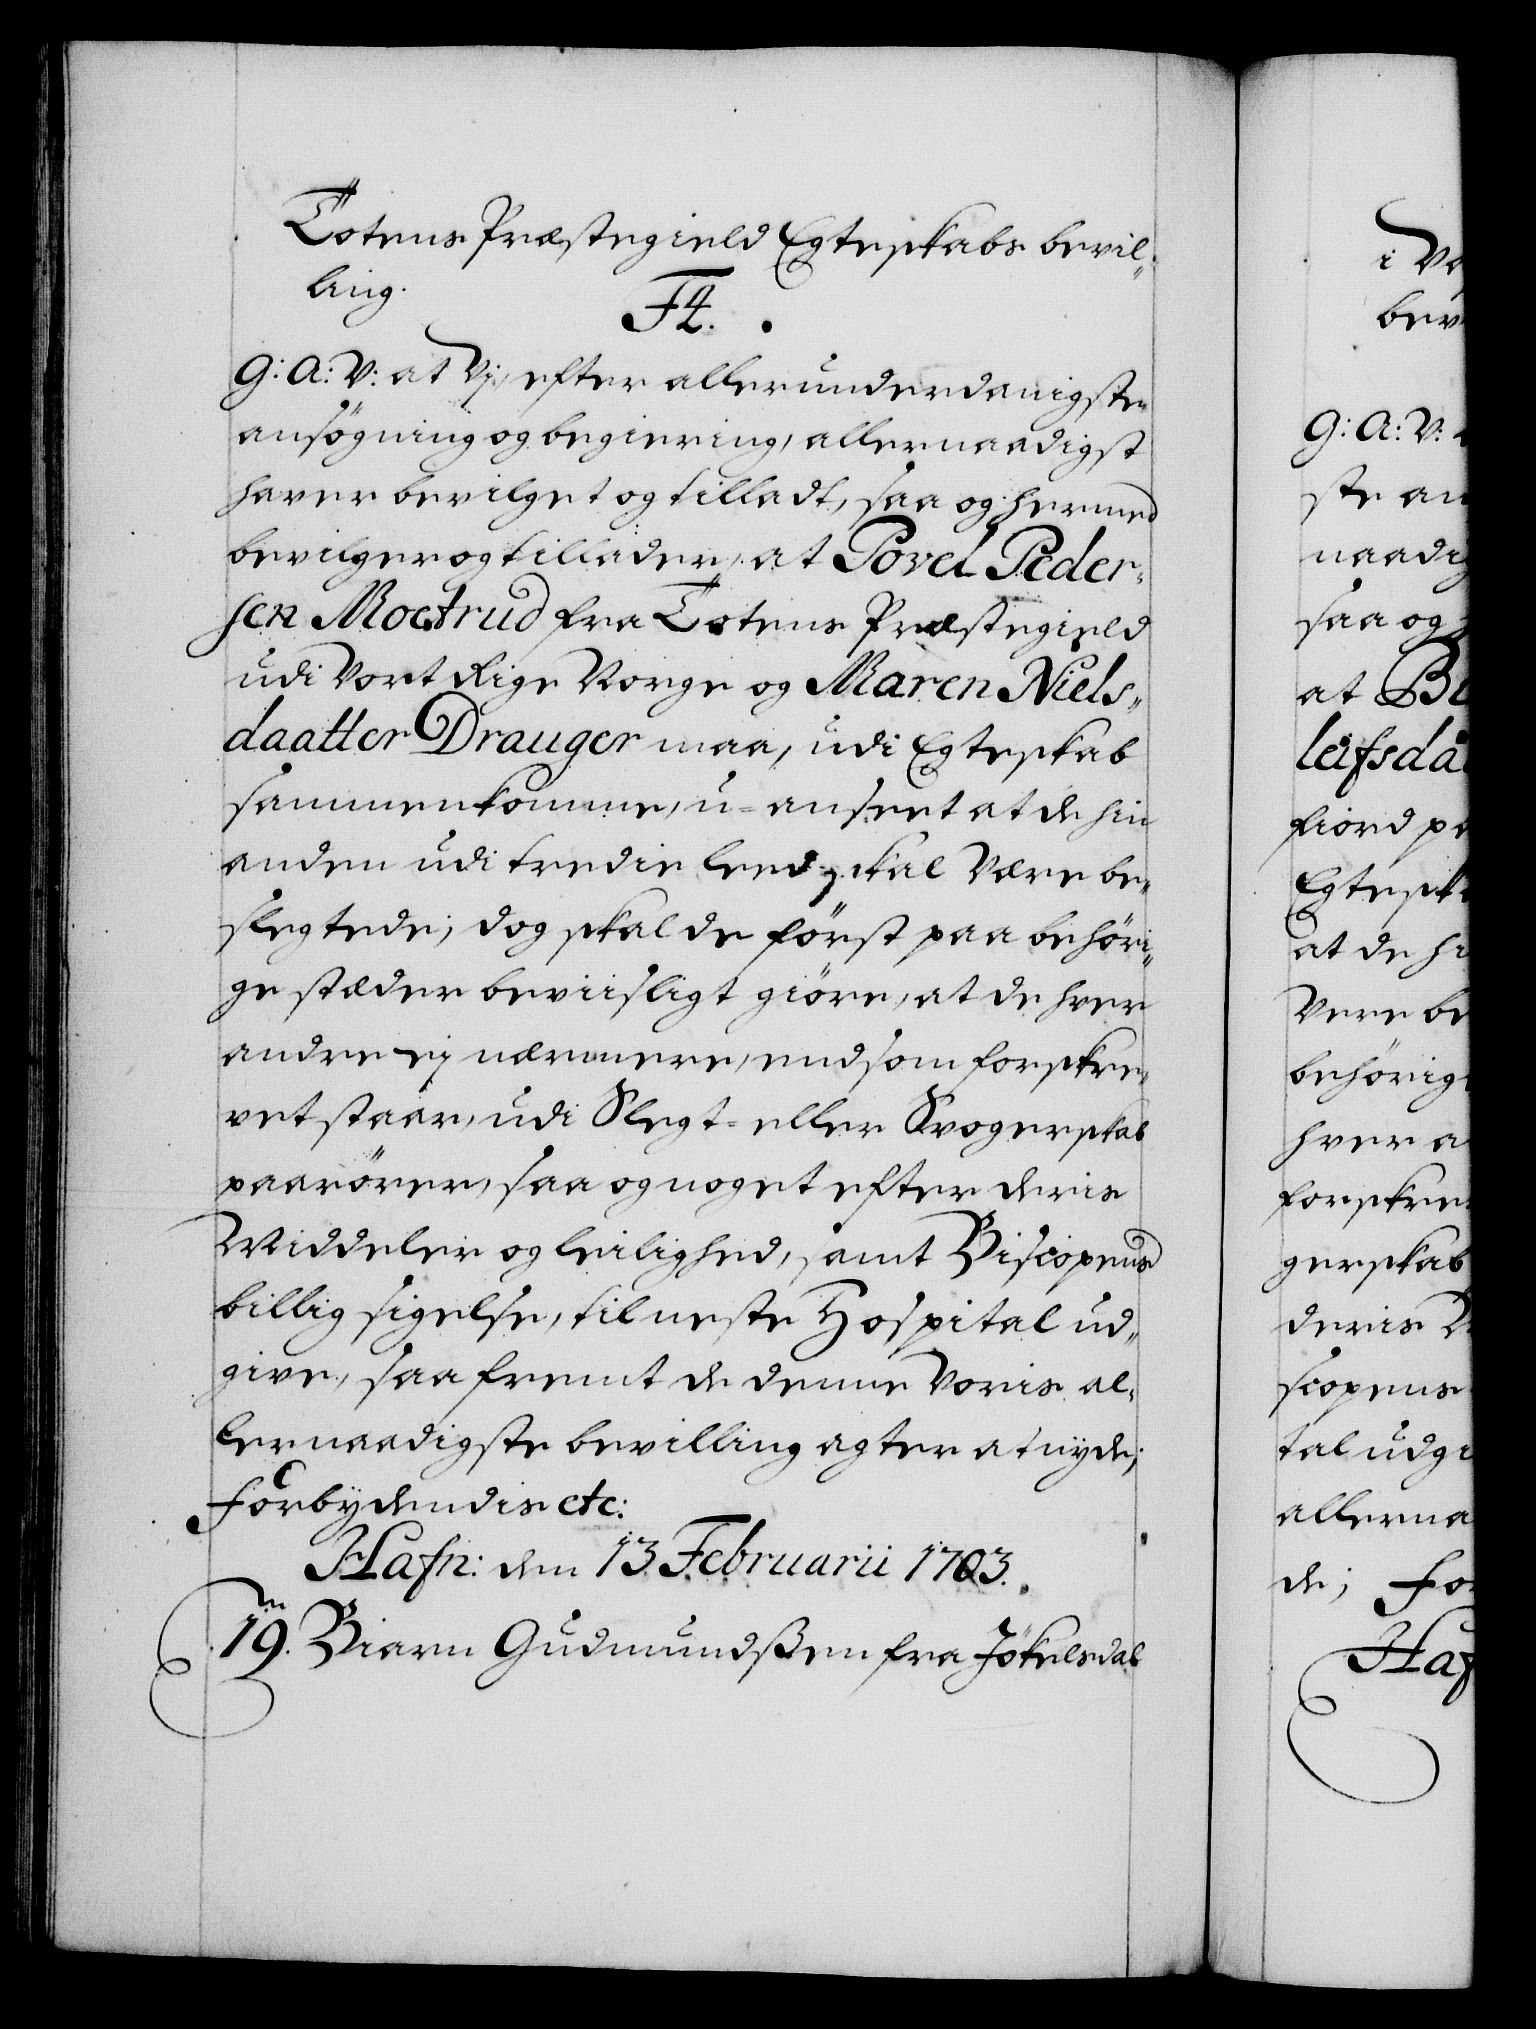 Totens Præstegield Egteskabs bevil-
ling.
F4.
G: A: V: at Vj, efter allerunderdanigste
ansøgning og begiering, allernaadigst
haver bevilget og tilladt, saa og hermed
bevilger og tillader, at Povel Peder-
sen Moestrud fra Totens Præstegield
udi Vort Rige Norge og Maren Niels-
daatter Drauger maa, udi Egteskab
sammenkomme, u-anseet at de hin
anden udi tredie leed skal være be-
slegtede; dog skal de först paa behöri-
ge stæder beviisligt giöre, at de hver
andre ej nærmere, end som forskre-
vet staar, udi Slegt- eller Svogerskab
paarörer, saa og noget efter deris
Middeler og leilighed, samt Biscopens
billig sigelse, til neste Hospital ud-
give, saa fremt de denne Voris al-
lernaadigste bevilling agter at nyde;
Forbydendis etc:
Hafn: den 13 Februarii 1703.
19. Biarn Gudmundßen fra Jökelsdal
i
bev
G: A: V:
ste an
naadig
saa og
at
leifsda
fiord pa
Egteska
at de hi
Vere be
behörig
hver a
forskre
gerskab
deris
scopens
tal udgi
allerna
de; For
Haf